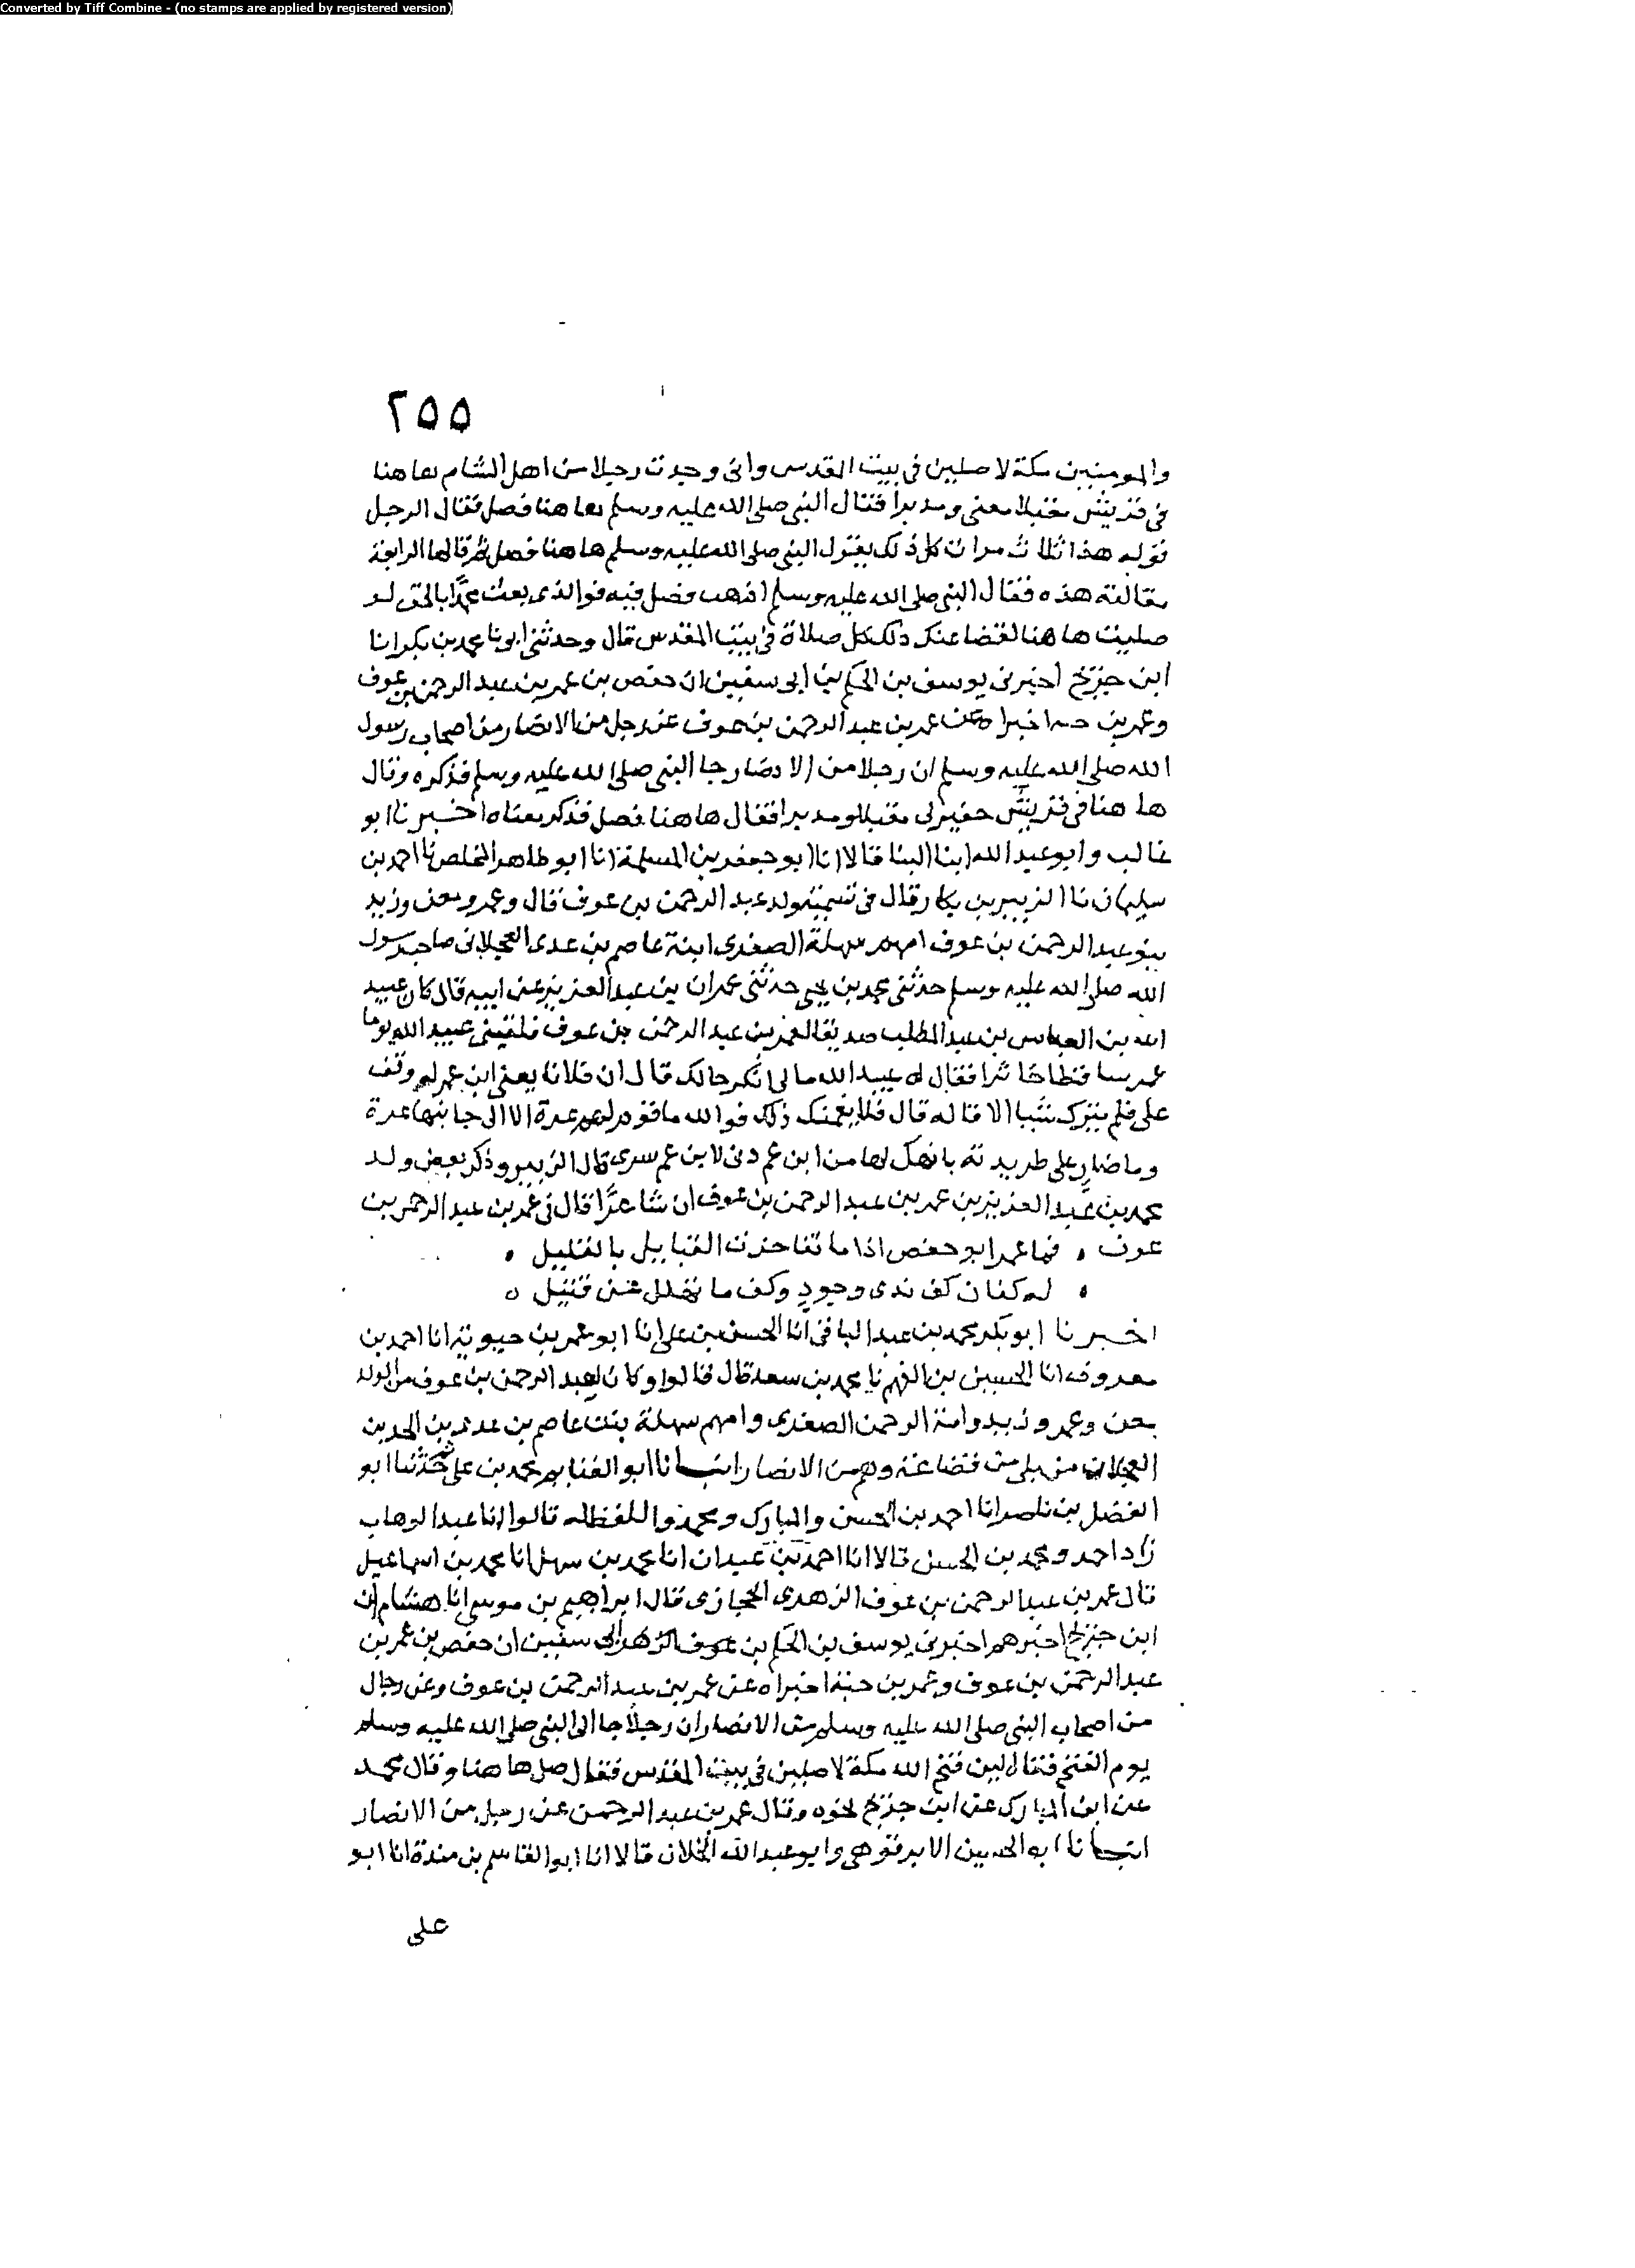 Converted by Tiff Combine - (no stamps are applied by registered version)
٢٥٥
والمومنين مكة لاصلين فى بيت المقدس وانى وجدت رجلا من اهل الشام هاهنا
فى قريش مقبلا معى ومدبرا فقال النبى صلى الله عليه وسلم هاهنا فصل فقال الرجل
قوله هذا ثلاث مرات كل ذلك يقول النبى صلى الله عليه وسلم هاهنا فصل ثم قالها الرابعة
مقالته هذه فقال النبى صلى الله عليه وسلم اذهب فصل فيه فوالذى بعث محمدا بالحق لو
صليت هاهنا لقضا عنك ذلك كل صلاة فى بيت المقدس قال وحدثنى ابى نا محمد بن بكر انا
ابن جريج اخبرنى يوسف بن الحكم بن ابى سفين ان حفص بن عمر بن عبد الرحمن بن عوف
وعمر بن حنه اخبراه عن عمر بن عبد الرحمن بن عوف عن رجل من الانصار من اصحاب رسول
الله صلى الله عليه وسلم ان رجلا من الانصار جا النبى صلى الله عليه وسلم فذكره وقال
ها هنا فى قريش خفير لى مقبلا ومدبرا فقال هاهنا فصل فذكر معناه اخبرنا ابو
غالب وابو عبد الله ابنا البنا قالا انا ابو جعفر بن المسلمة انا ابو طاهر المخلص نا احمد بن
سليمان نا الزبير بن بكار قال فى تسمية ولد عبد الرحمن بن عوف قال وعمر ومعن وزيد
بنو عبد الرحمن بن عوف امهم سهلة الصغرى ابنة عاصم بن عدى العجلانى صاحب رسول
الله صلى الله عليه وسلم حدثنى محمد بن يحيى حدثنى عمران بن عبد العزيز عن ابيه قال كان عبيد
الله بن العباس بن عبد المطلب صديقا لعمر بن عبد الرحمن بن عوف فلقينى عبيد الله يوما
عمر فقال له عبيد الله مالى انكر حالك قال ان فلانا يعنى ابن عم له وقف
على فلم يترك شيا الا قاله قال فلا يغمنك ذلك فوالله ما قوم لهم عرة الا الى جانبها عرة
وما ضار على طريدته بانهك لها من ابن عم دنى لابن عم سرى قال الزبير وذكر بعض ولد
محمد بن عبد العزيز بن عمر بن عبد الرحمن بن عوف ان شاعرا قال فى عمر بن عبد الرحمن بن
عوف ٠ فما عمر ابو حفص اذا ما تفاخرت القبايل بالقليل ٠
٠ له كفان كف ندى وجود وكف ما تخلل عن قتيل ٥
اخبرنا ابو بكر محمد بن عبد الباقى انا الحسن بن على انا ابو عمر بن حيوية انا احمد بن
معروف انا الحسين بن الفهم نا محمد بن سعد قال قالوا وكان لعبد الرحمن بن عوف من الولد
معن وعمر وزيد وامة الرحمن الصغرى وامهم سهلة بنت عاصم بن عدى بن الجد بن
العجلان من بلى من قضاعة وهم من الانصار انبانا ابو الغنايم محمد بن على ثم حدثنا ابو
الفضل بن ناصر انا احمد بن الحسن والمبارك ومحمد واللفظ له قالوا انا عبد الوهاب
زاد احمد ومحمد بن الحسن قالا انا احمد بن عبدان انا محمد بن سهل انا محمد بن اسماعيل
قال عمر بن عبد الرحمن بن عوف الزهرى الحجازى قال ابراهيم بن موسى انا هشام ان
ابن جريج اخبرهم اخبرنى يوسف بن الحكم بن ابى سفين ان حفص بن عمر بن
عبد الرحمن بن عوف وعمر بن حنة اخبراه عن عمر بن عبد الرحمن بن عوف وعن رجال
من اصحاب النبى صلى الله عليه وسلم من الانصار ان رجلا جا الى النبى صلى الله عليه وسلم
يوم الفتح فقال لين فتح الله مكة لاصلين فى بيت المقدس فقال صل هاهنا وقال محمد
عن ابن المبارك عن ابن جريج نحوه وقال عمر بن عبد الرحمن عن رجل من الانصار
انبانا ابو الحسين الابرقوهى وابو عبد الله الخلال قالا انا ابو القاسم بن مندة انا ابو
على